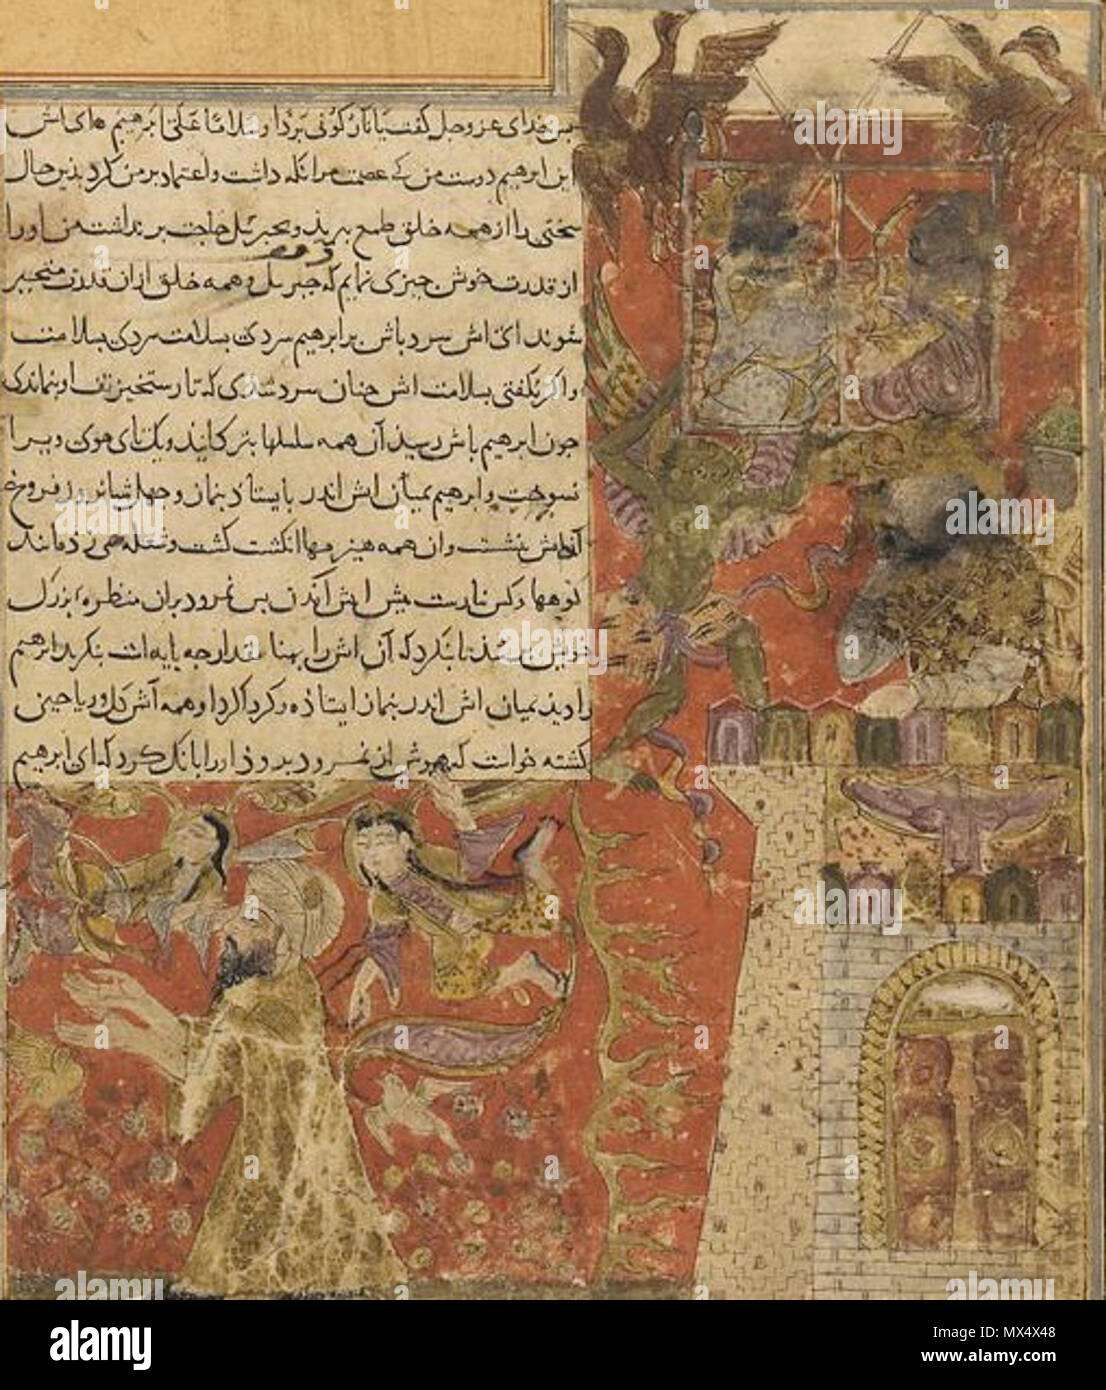 پس خدای عز و جل گفت یا نار کونی بردا و سلاما علی ابرهیم های اتش
این ابرهیم دوست من کی عصمت مرا نکه داشت و اعتماد بر من کرد بدین حال
سختی را از همه خلق طمع ببرید و بجبریل حاجت بر نداشت من اورا
از قدرت خوش جیزی نمایم که جبریل و همه خلق از ان قدرت متحیر
شوند ای اتش سرد باش بر ابرهیم سردی بسلامت سردی بسلامت
و اکر نکفتی بسلامت اتش جنان سرد شدی که تا رستخیز تف او بنماندی
جون ابرهیم باتش رسید آن همه سلسلها و یکتای موی ویرا
نسوخت و ابرهیم بمیان اتش اندر بایستاد بنماز و جهل شباروز فروغ
آن اتش بنشست و ان همه هیزمها انکشت کشت و شعله می زد مانند
کوهها و کس نیارست پیش اتش آمدن پس نمرود بران منظره بزرک
خویش بر شد تا بنکرد که آن اتش را بهنا و مقدار جه پایه است بنکرید ابرهیم
را دید بمیان اتش اندر بنماز ایستاده و کرد اکرد او همه آتش کل و ریاحین
کشته خواست که هوش از نمرود برود اورا بانک کرد که ای ابرهیم
alamy
Image ID: MX4X48
www.alamy.com